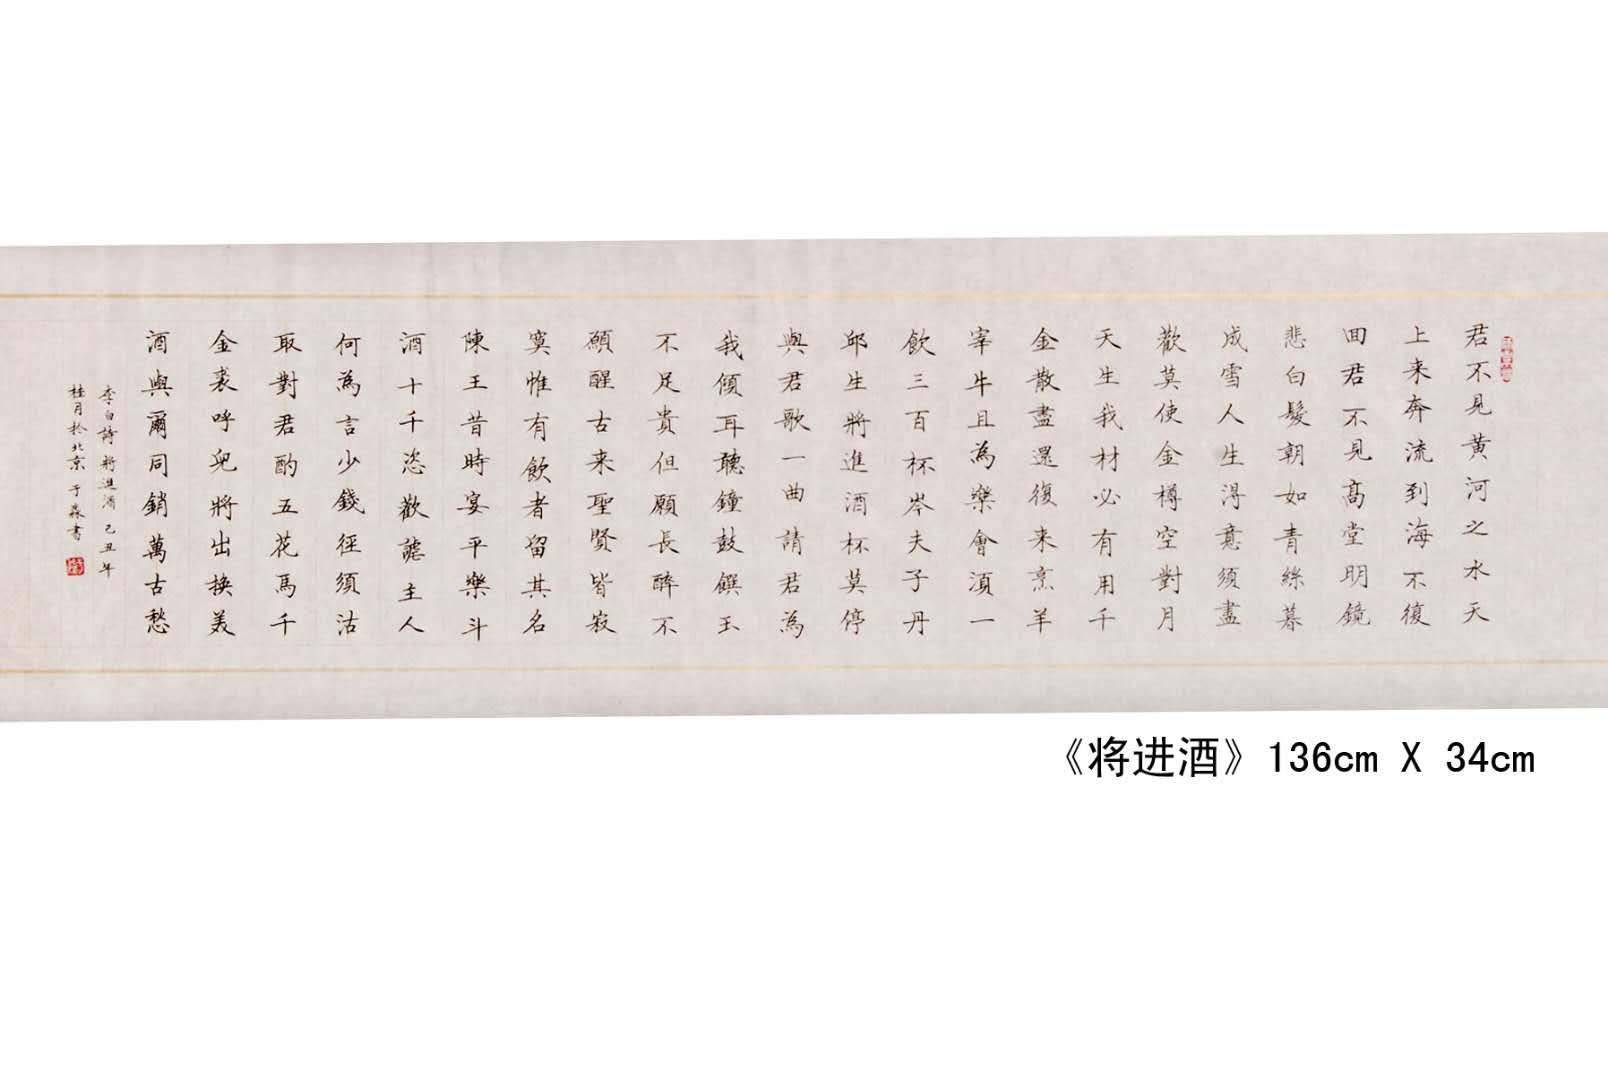 君不見黄河之水天
上来奔流到海不復
回君不見髙堂明鏡
悲白髮朝如青絲暮
成雪人生淂意須盡
歡莫使金樽空對月
天生我材必有用千
金散盡還復来烹羊
宰牛且為樂會湏一
飲三百杯岑夫子丹
邱生將進酒杯莫停
與君歌一曲請君為
我傾耳聽鐘鼓饌玉
不足貴但願長醉不
願醒古来聖賢皆寂
寞惟有飲者留其名
陳王昔時宴平樂斗
酒十千恣歡謔主人
何為言少錢徑須沽
取對君酌五花馬千
金裘呼兒將出換美
酒與爾同銷萬古愁
李白詩將進酒己丑年
桂月於北京于淼書
《将进酒》136cm X 34cm